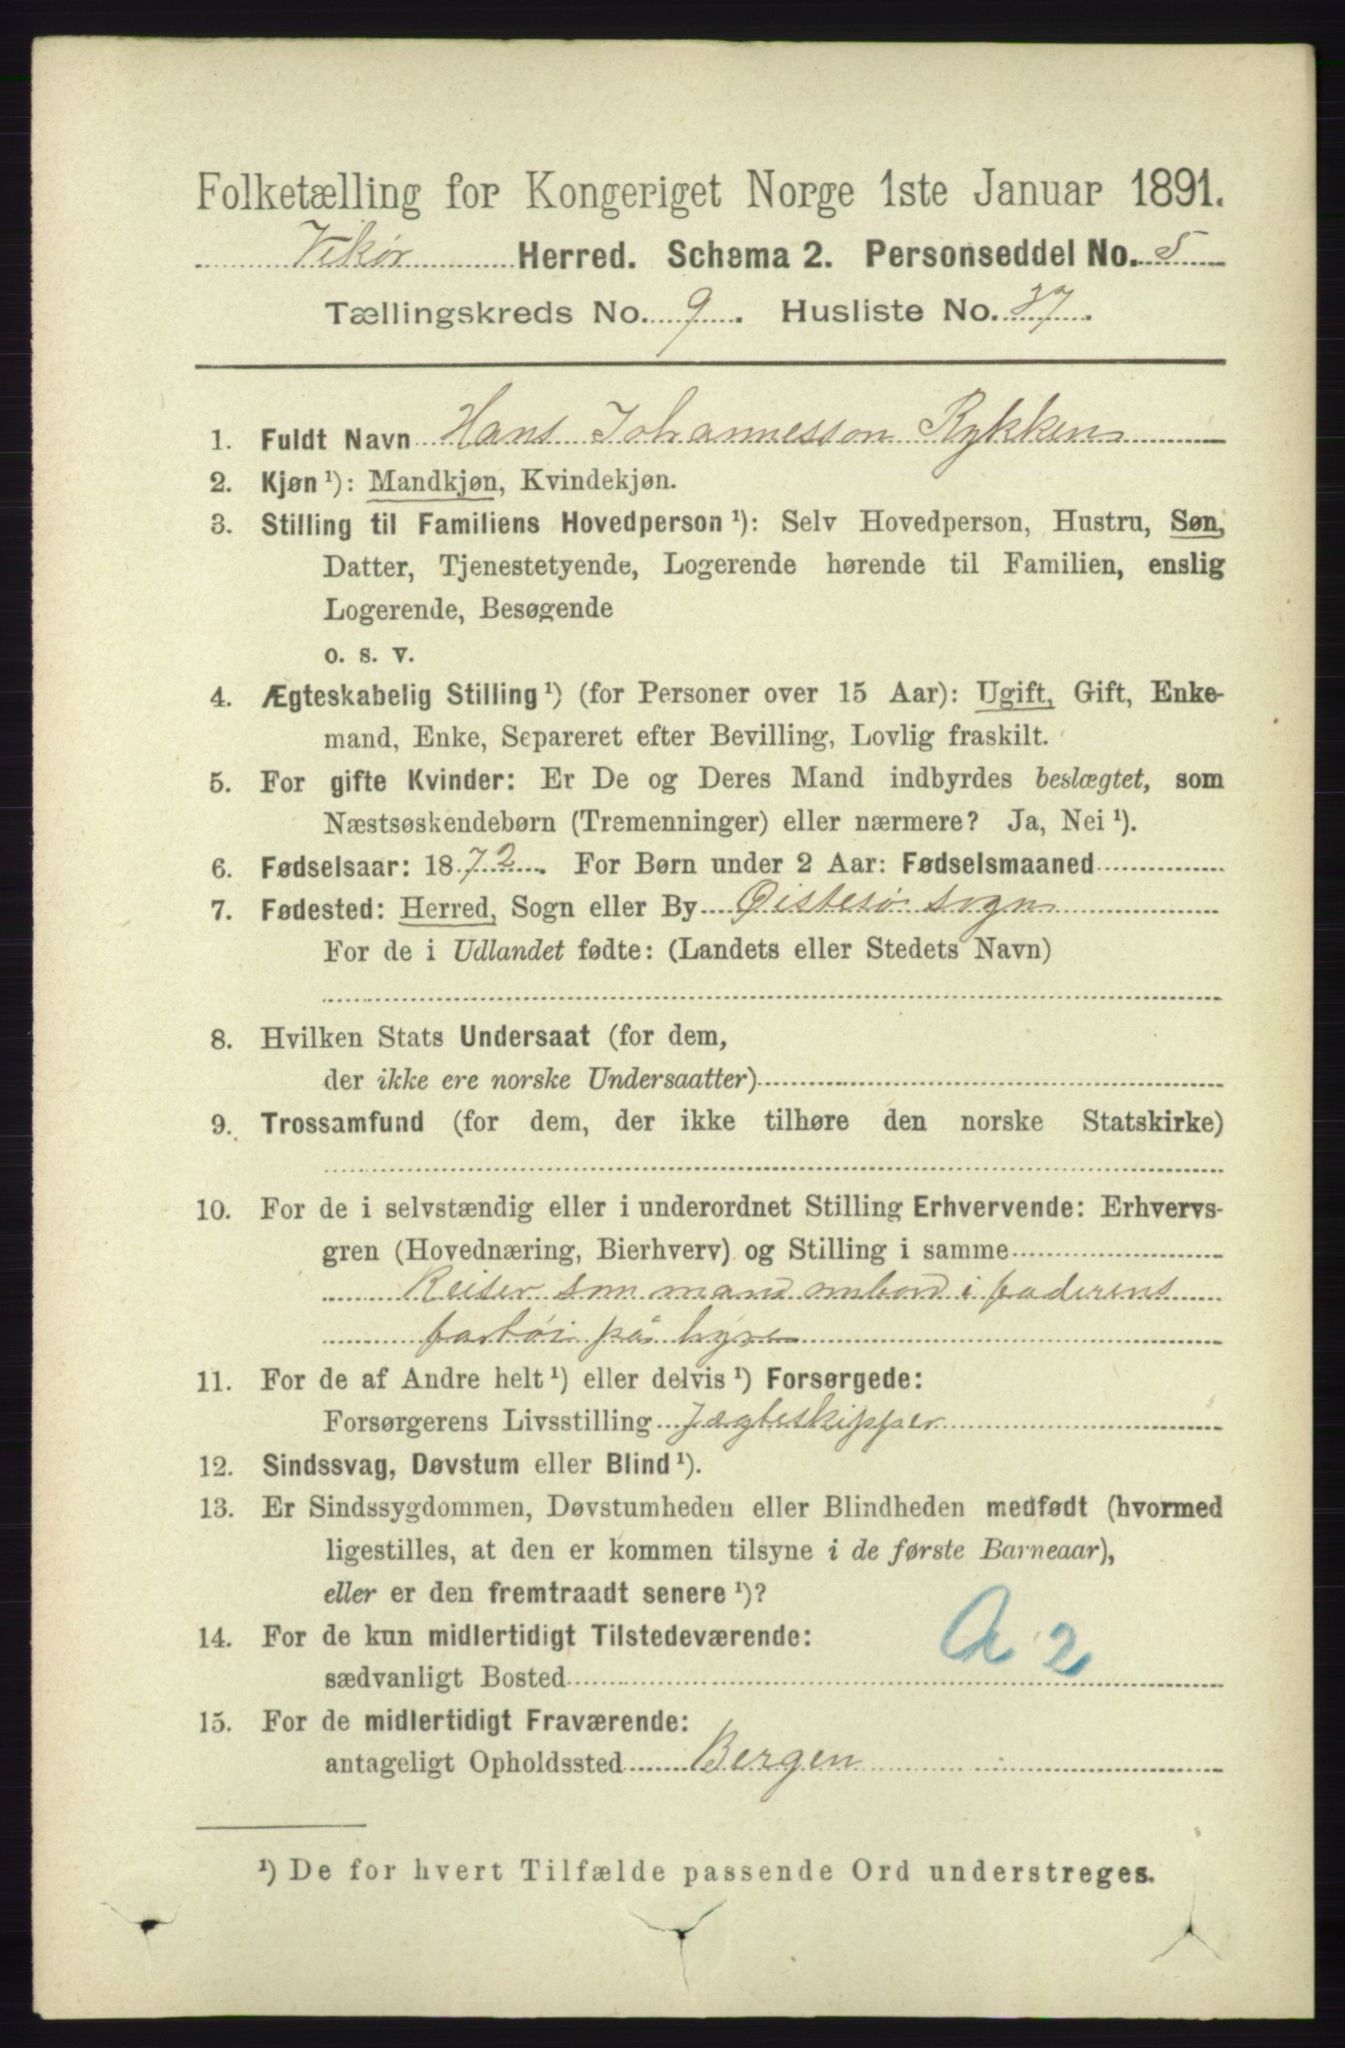 Folketælling for Kongeriget Norge 1ste Januar 1891.
Vikør Herred. Schema 2. Personseddel No. 5
Tællingskreds No. 9. Husliste No. 37.
1. Fuldt Navn Hans Johannesson Rykken
2. Kjøn ¹): Mandkjøn, Kvindekjøn.
3. Stilling til Familiens Hovedperson ¹): Selv Hovedperson, Hustru, Søn,
Datter, Tjenestetyende, Logerende hørende til Familien, enslig
Logerende, Besøgende
o. s. v.
4. Ægteskabelig Stilling ¹) (for Personer over 15 Aar): Ugift, Gift, Enke-
mand, Enke, Separeret efter Bevilling, Lovlig fraskilt.
5. For gifte Kvinder: Er De og Deres Mand indbyrdes beslægtet, som
Næstsøskendebørn (Tremenninger) eller nærmere? Ja, Nei ¹).
6. Fødselsaar: 1872. For Børn under 2 Aar: Fødselsmaaned
7. Fødested: Herred, Sogn eller By Øistesø sogn
For de i Udlandet fødte: (Landets eller Stedets Navn)
8. Hvilken Stats Undersaat (for dem,
der ikke ere norske Undersaatter)
9. Trossamfund (for dem, der ikke tilhøre den norske Statskirke)
10. For de i selvstændig eller i underordnet Stilling Erhvervende: Erhvervs-
gren (Hovednæring, Bierhverv) og Stilling i samme
Reiser som mand ombord i faderens
fartøi på hyre
11. For de af Andre helt ¹) eller delvis ¹) Forsørgede:
Forsørgerens Livsstilling Jægteskipper
12. Sindssvag, Døvstum eller Blind ¹).
13. Er Sindssygdommen, Døvstumheden eller Blindheden medfødt (hvormed
ligestilles, at den er kommen tilsyne i de første Barneaar),
eller er den fremtraadt senere ¹)?
14. For de kun midlertidigt Tilstedeværende:
sædvanligt Bosted
A 2
15. For de midlertidigt Fraværende:
antageligt Opholdssted Bergen
¹) De for hvert Tilfælde passende Ord understreges.